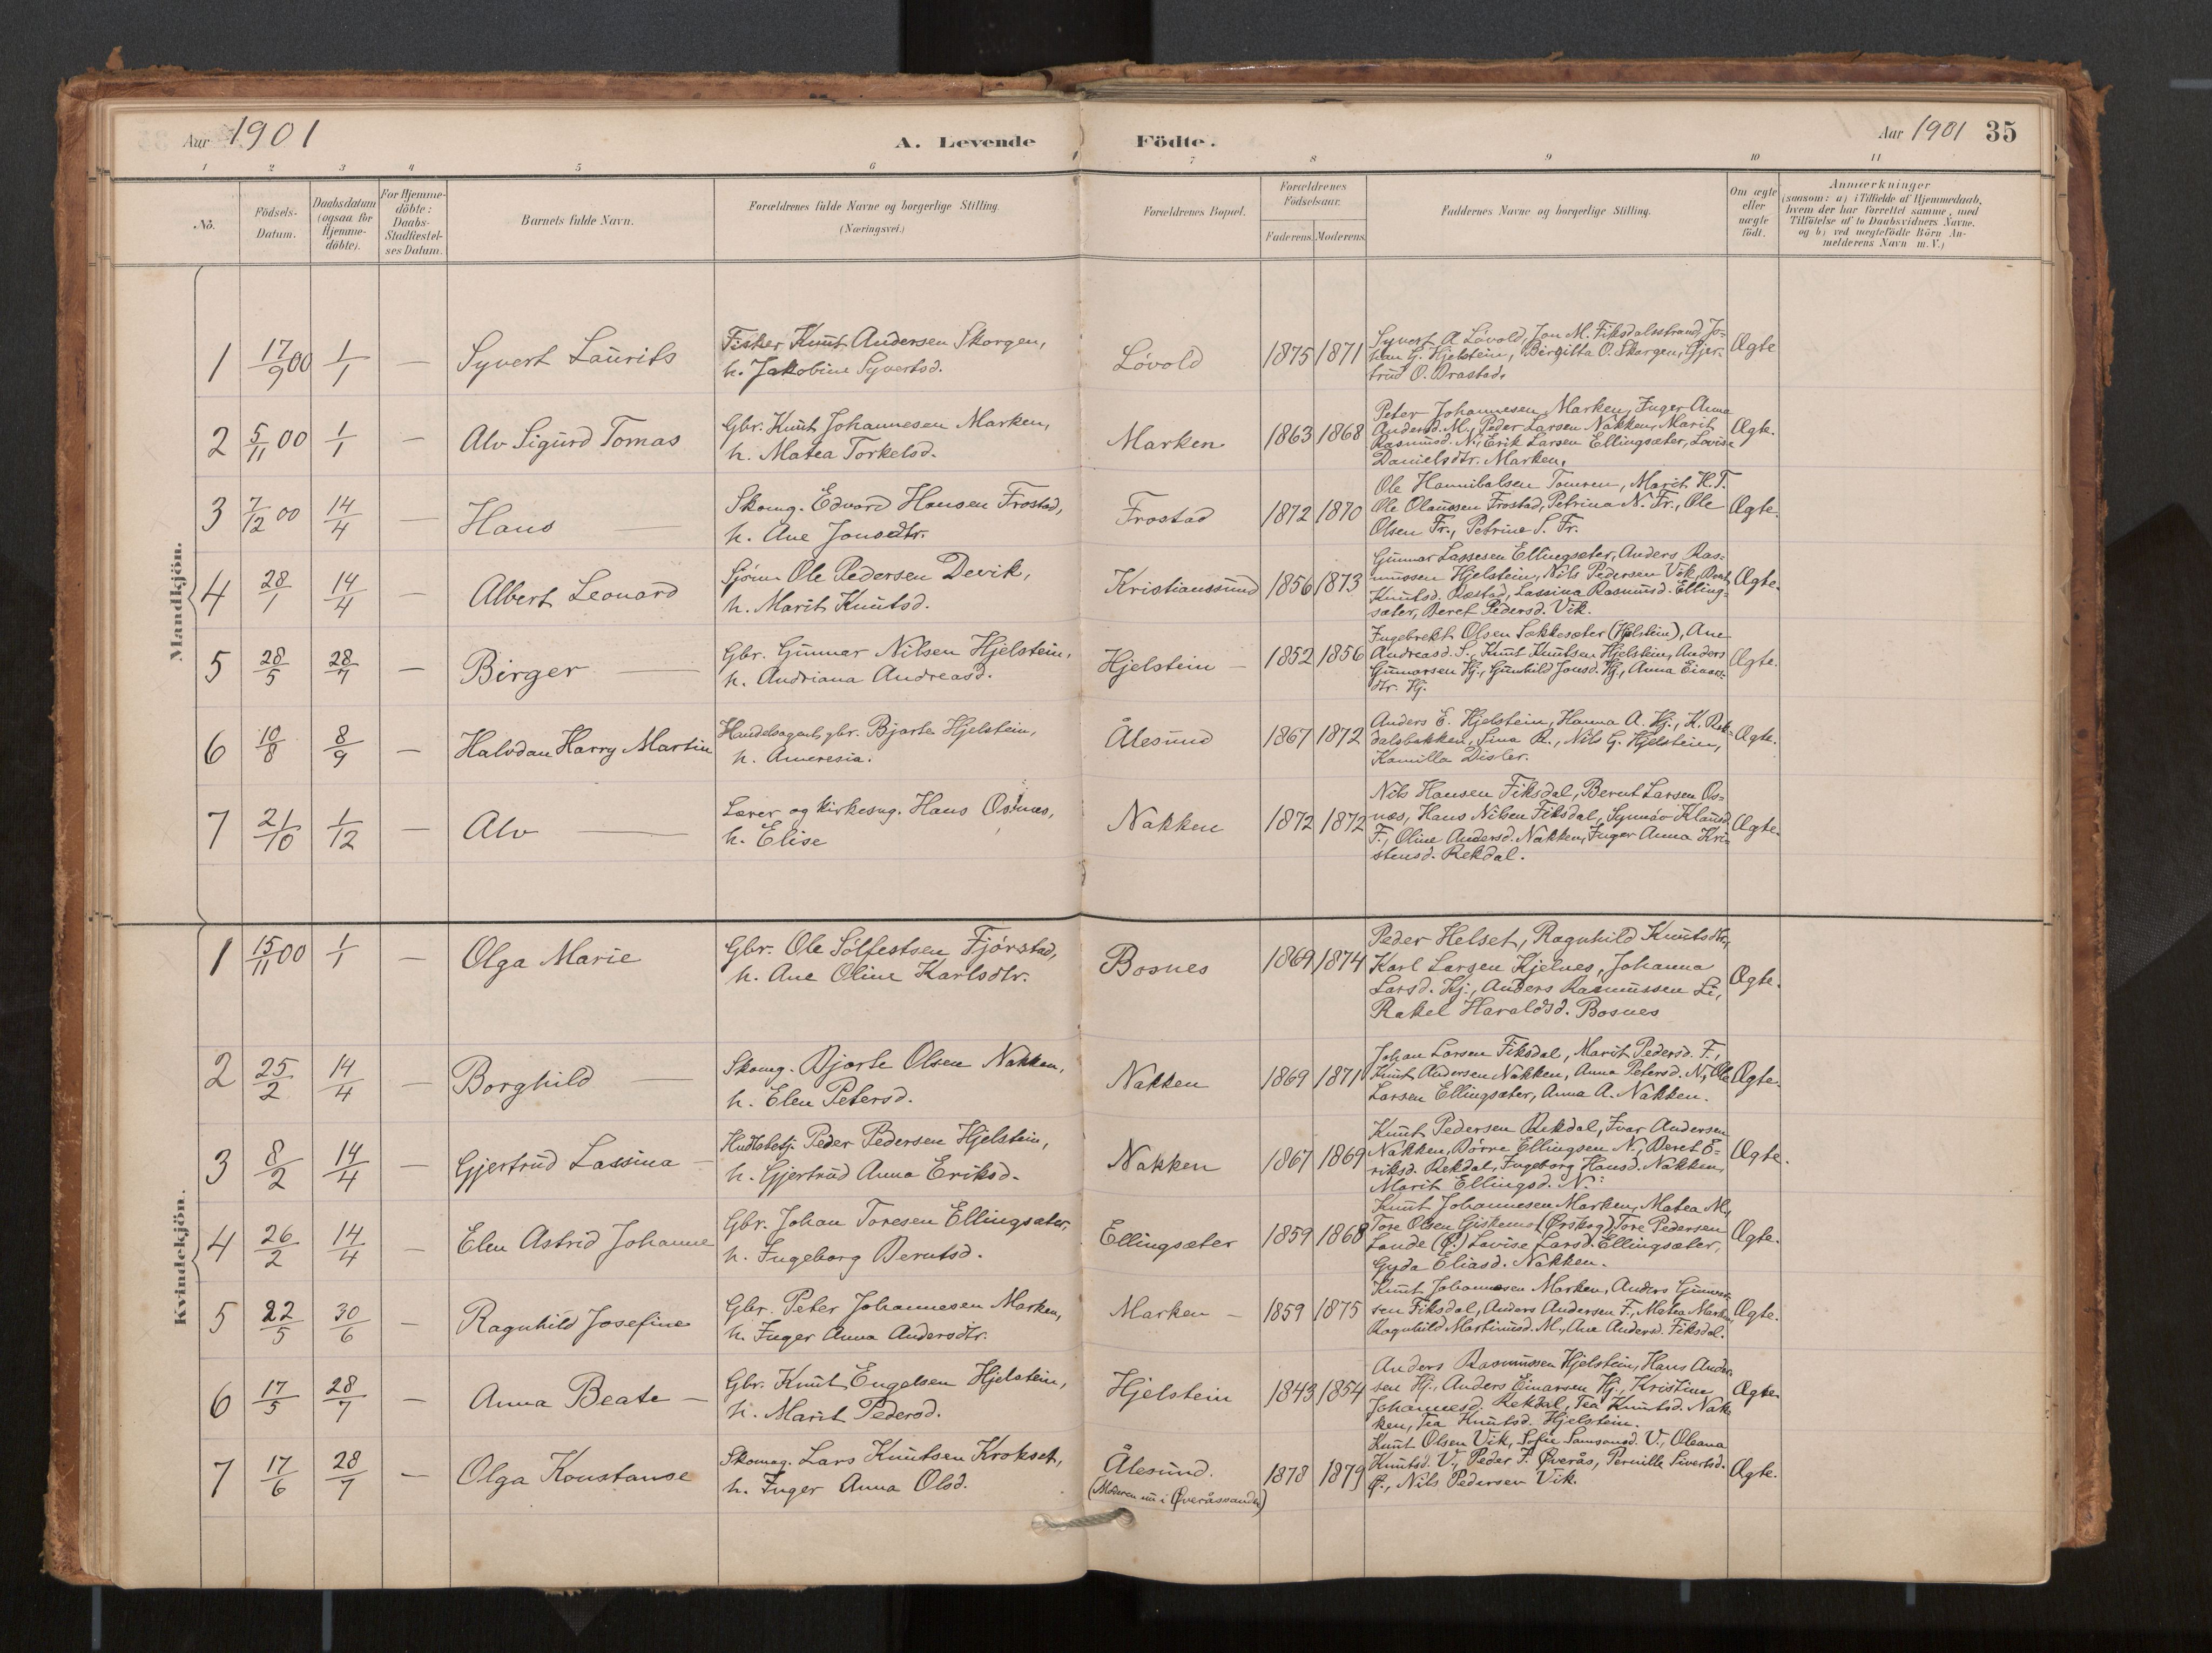 Aar 1901
A. Levende
Födte.
Aar 1901 35
1 2 3 4 5 6 7 8 9 10 11
No.
Födsels-Datum.
Daabsdatum (ogsaa for Hjemmedöbte).
For Hjemmedöbte: Daabs-Stadfæstelses Datum.
Barnets fulde Navn.
Forældrenes fulde Navne og borgerlige Stilling. (Næringsvei.)
Forældrenes Bopæl.
Forældrenes Födselsaar.
Faderens. Moderens.
Faddernes Navne og borgerlige Stilling.
Om ægte eller uægte födt.
Anmærkninger
(saasom: a) i Tilfælde af Hjemmedaab, hvem der har forrettet samme, med Tilföielse af to Daabsvidners Navne, og b) ved uægtefödte Börn Anmelderens Navn m. V.)
Mandkjön.
1 17/9 00 1/1 — Syvert Laurits
Fisker Knut Andersen Skorgen,
h. Jakobine Syvertsd.
Lövold 1875 1871
Syvert A. Lövold, Jon M. Fiksdalsstrand, Jo-
han G. Hjelstein, Birgitta O. Skorgen, Gjer-
trud O. Vrastad.
Ægte
2 5/11 00 1/1 — Alv Sigurd Tomas
Gbr. Knut Johannesen Marken,
h. Matea Torkelsd.
Marken 1863 1868
Peter Johannesen Marken, Inger Anna
Andersd. M., Peder Larsen Nakken, Marit
Rasmusd. N., Erik Larsen Ellingsæter, Lovise
Danielsdtr. Marken.
Ægte.
3 7/12 00 14/4 — Hans —
Skomg. Edvard Hansen Frostad,
h. Ane Jonsdtr.
Frostad 1872 1870
Ole Hannibalsen Tomren, Marit H. T.
Ole Olaussen Frostad, Petrina N. Fr., Ole
Olsen Fr., Petrine S. Fr.
Ægte.
4 28/1 14/4 — Albert Leonard
Sjöm. Ole Pedersen Devik,
h. Marit Knutsd.
Kristianssund 1856 1873
Gunnar Lassesen Ellingsæter, Anders Ras-
mussen Hjelstein, Nils Pedersen Vik, Berit
Knutsd. Restad, Lassina Rasmusd. Elling-
sæter, Beret Pedersd. Vik.
Ægte.
5 28/5 28/7 — Birger —
Gbr. Gunnar Nilsen Hjelstein,
h. Andriana Andreasd.
Hjelstein — 1852 1856
Ingebrekt Olsen Sekkesæter (Hjelstein), Ane
Andreasd. S., Knut Knutsen Hjelstein, Anders
Gunnarsen Hj., Gunhild Jonsd. Hj., Anna Einars-
dtr. Hj.
Ægte.
6 10/8 8/9 — Halvdan Harry Martin
Handelsagent, gbr. Bjarte Hjelstein,
h. Ameresia.
Ålesund 1867 1872
Anders E. Hjelstein, Hanna A. Hj., K. Rek-
dalsbakken, Sina R., Nils G. Hjelstein,
Kamilla Disler.
Ægte.
7 21/10 1/12 — Alv —
Lærer og kirkesng. Hans Osnæs,
h. Elise
Nakken 1872 1872
Nils Hansen Fiksdal, Bernt Larsen Os-
næs, Hans Nilsen Fiksdal, Synnöv Klausd.
F., Oline Andersd. Nakken, Inger Anna Kri-
stensd. Rekdal.
Ægte.
Kvindekjön.
1 15/11 00 1/1 — Olga Marie
Gbr. Ole Sölfestsen Fjörstad,
h. Ane Oline Karlsdtr.
Bosnes 1869 1874
Peder Helset, Ragnhild Knutsdtr,
Karl Larsen Kjelnes, Johanna
Larsd. Kj., Anders Rasmussen Li,
Rakel Haraldsd. Bosnes
Ægte.
2 25/2 14/4 — Borghild —
Skomg. Bjarte Olsen Nakken,
h. Elen Petersd.
Nakken 1869 1871
Johan Larsen Fiksdal, Marit Pedersd. F.,
Knut Andersen Nakken, Anna Petersd. N., Ole
Larsen Ellingsæter, Anna A. Nakken.
Ægte.
3 8/2 14/4 — Gjertrud Lassina —
Hndlsbetj. Peder Pedersen Hjelstein,
h. Gjertrud Anna Eriksd.
Nakken 1867 1869
Knut Pedersen Rekdal, Ivar Andersen
Nakken, Börre Ellingsen N., Beret E-
riksd. Rekdal, Ingeborg Hansd. Nakken,
Marit Ellingsd. N.
Ægte.
4 26/2 14/4 — Elen Astrid Johanne
Gbr. Johan Toresen Ellingsæter,
h. Ingeborg Berntsd.
Ellingsæter 1859 1868
Knut Johannesen Marken, Matea M.,
Tore Olsen Giskemo (Ørskog), Tore Pedersen
Lande (Ø.) Lovise Larsd. Ellingsæter,
Gyda Eliasd. Nakken.
Ægte.
5 22/5 30/6 — Ragnhild Josefine
Gbr. Peter Johannesen Marken,
h. Inger Anna Andersdtr.
Marken — 1859 1875
Knut Johannesen Marken, Anders Gunnar-
sen Fiksdal, Anders Andersen F., Matea Marken,
Ragnhild Martinusd. M., Ane Andersd. Fiksdal.
Ægte.
6 17/5 28/7 — Anna Beate —
Gbr. Knut Engelsen Hjelstein,
h. Marit Pedersd.
Hjelstein 1843 1854
Anders Rasmussen Hjelstein, Hans Ander-
sen Hj., Anders Einarsen Hj., Kristine
Johannesd. Rekdal, Tea Knutsd. Nak-
ken, Tea Knutsd. Hjelstein.
Ægte.
7 17/6 28/7 — Olga Konstanse
Skomag. Lars Knutsen Krokset,
h. Inger Anna Olsd.
Ålesund.
(Moderen nu i Øveråssanden)
1878 1879
Knut Olsen Vik, Sofie Samsonsd. V., Oleana
Knutsd. V., Peder F. Øverås, Pernille Sivertsd.
Ø., Nils Pedersen Vik.
Ægte.